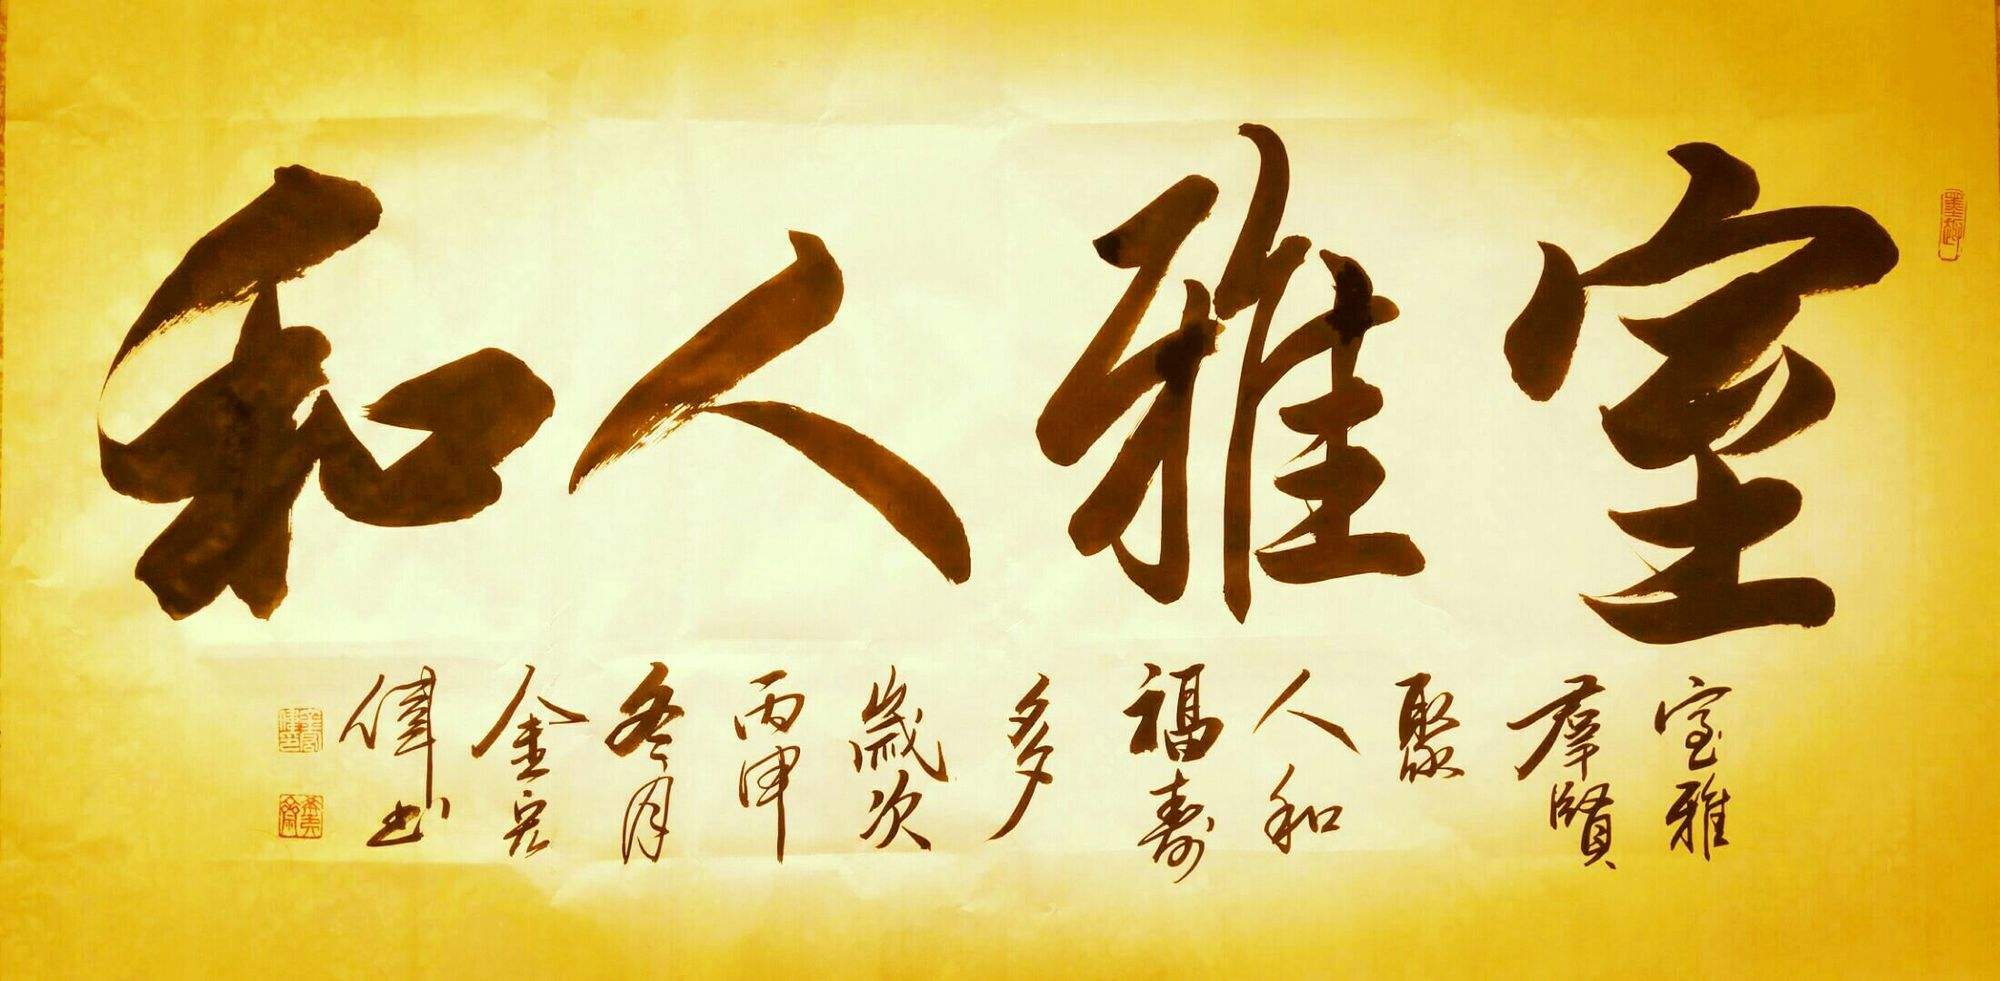 室雅人和
室雅
群賢
聚
人和
福壽
多
歲次
丙申
冬月
金宏
偉書